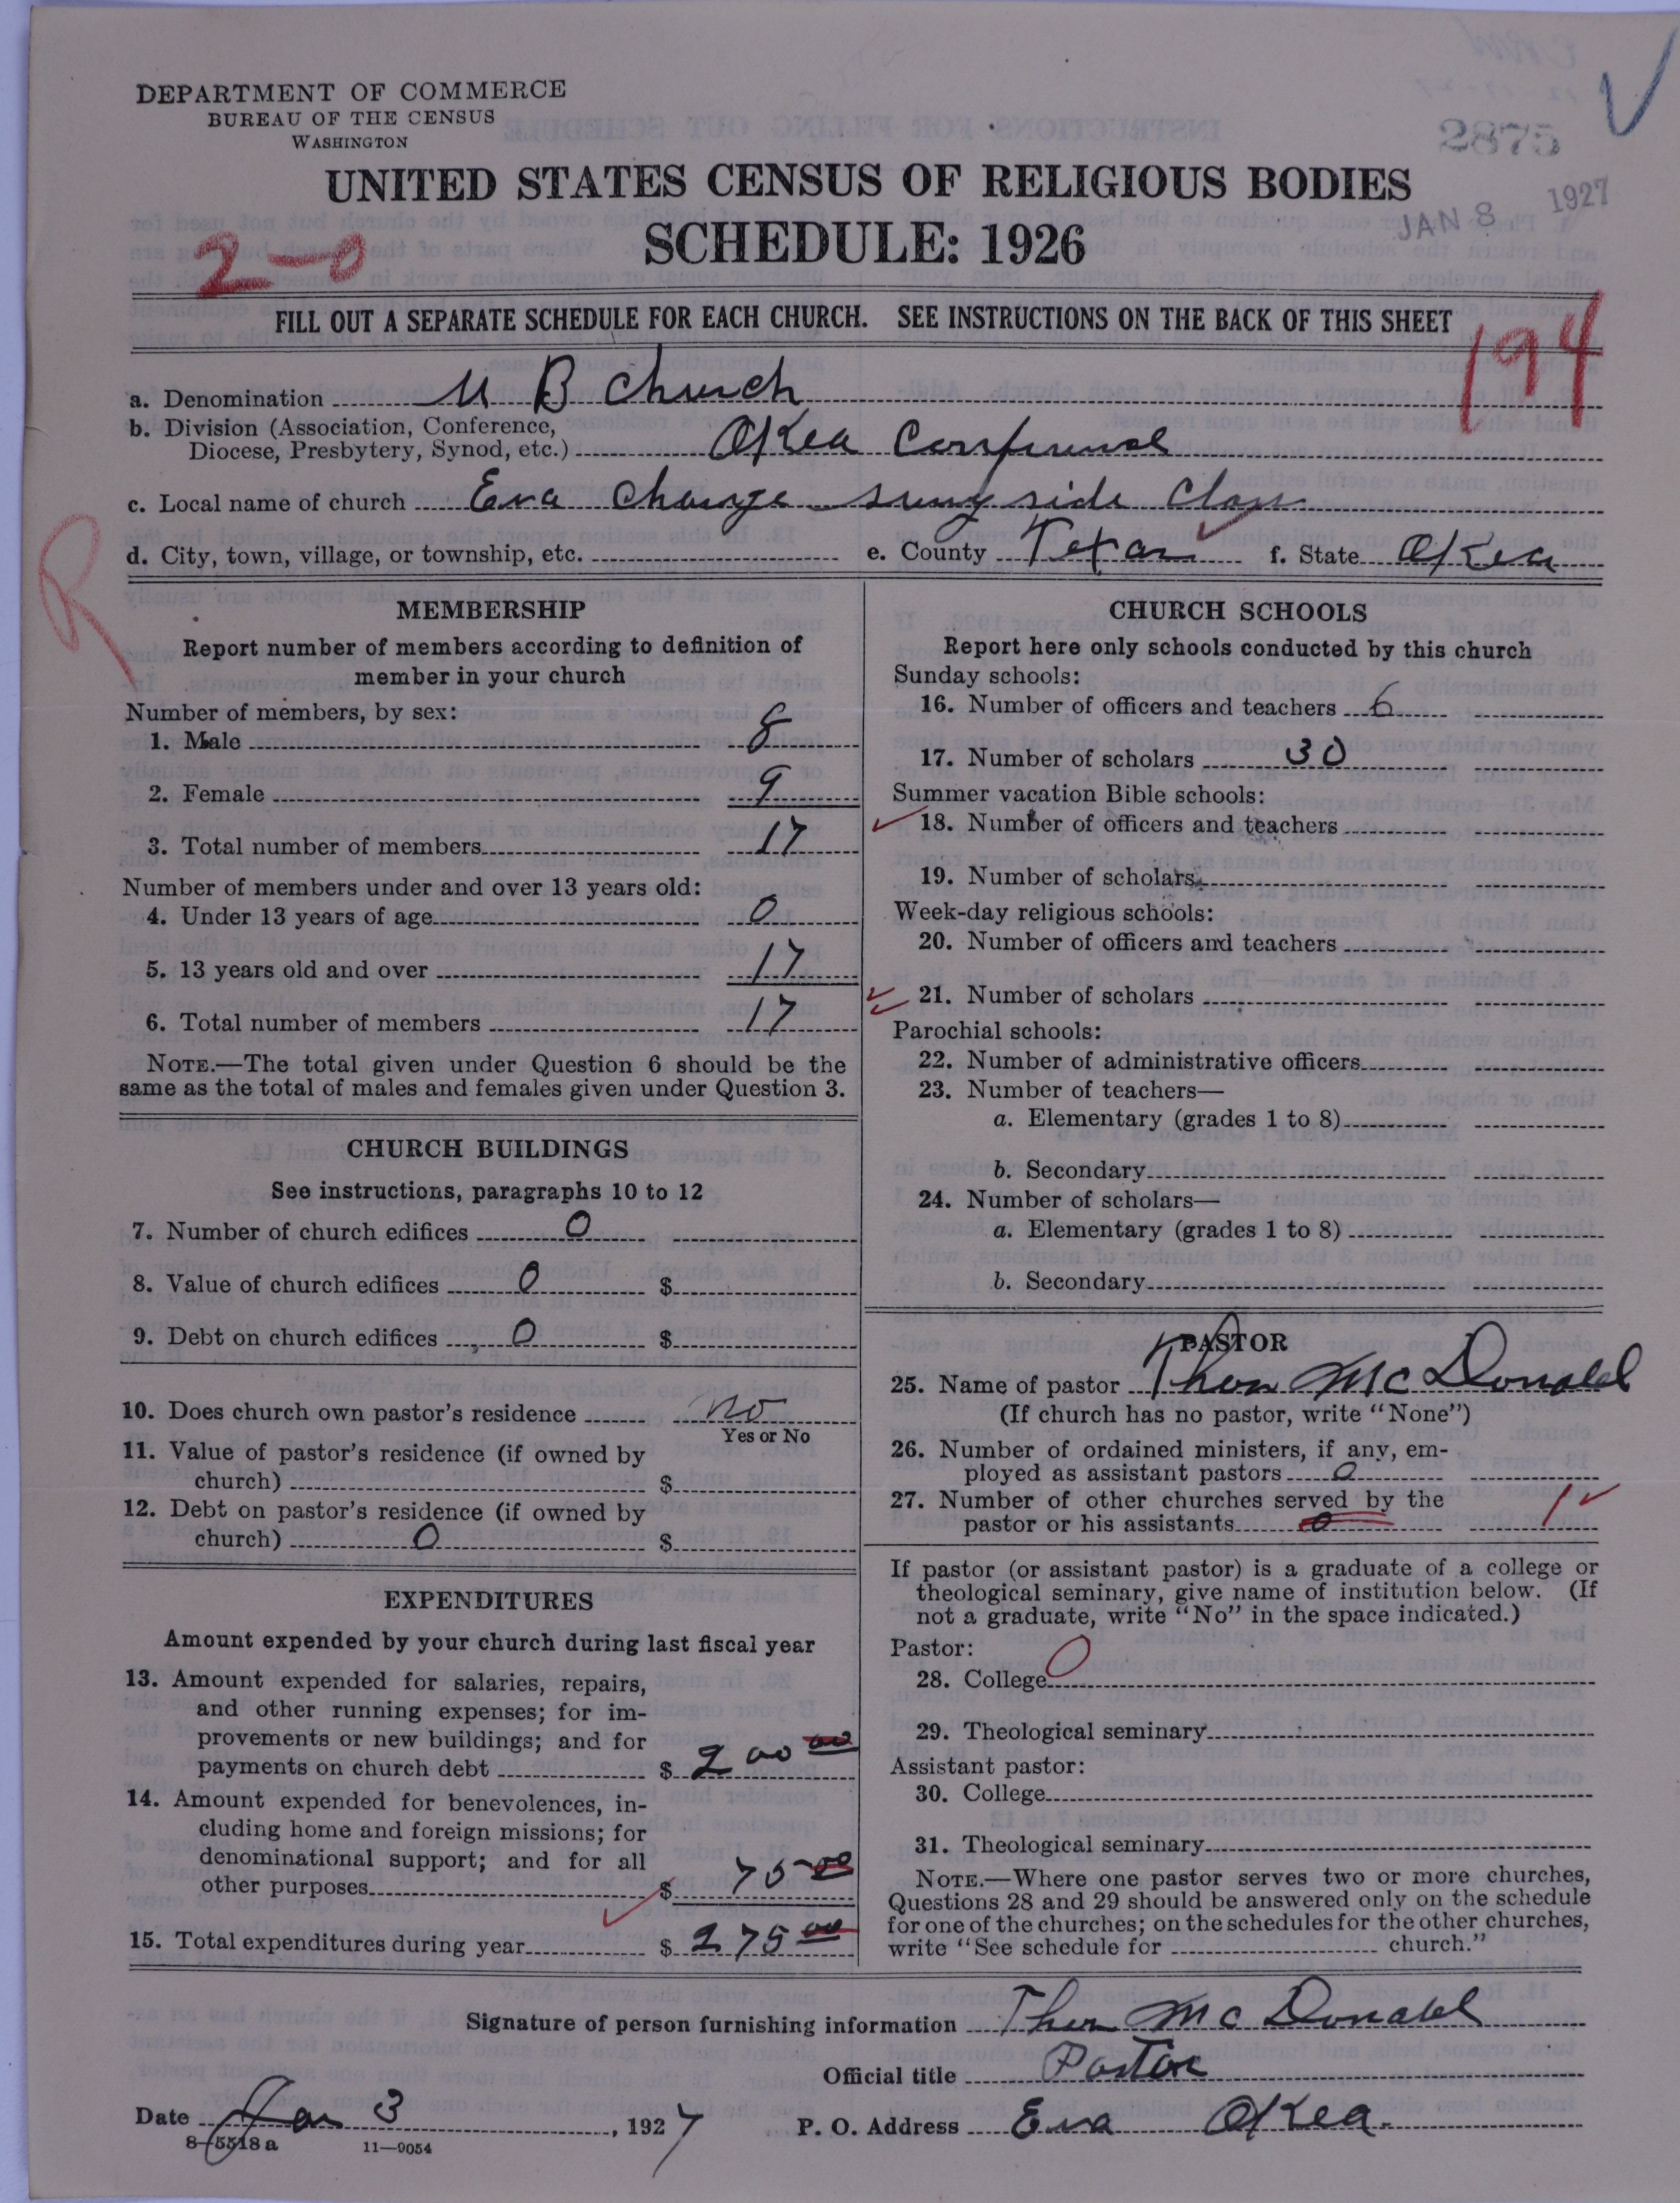 DEPARTMENT OF COMMERCE
BUREAU OF THE CENSUS
WASHINGTON
2875
UNITED STATES CENSUS OF RELIGIOUS BODIES
JAN 8 1927
SCHEDULE: 1926
2-0
FILL OUT A SEPARATE SCHEDULE FOR EACH CHURCH. SEE INSTRUCTIONS ON THE BACK OF THIS SHEET
194
a. Denomination U B Church
b. Division (Association, Conference,
Diocese, Presbytery, Synod, etc.) Okea Conference
c. Local name of church Eva Charge suny side Class
d. City, town, village, or township, etc. e. County Texas f. State Okea
R
MEMBERSHIP
Report number of members according to definition of
member in your church
Number of members, by sex:
1. Male 8
2. Female 9
3. Total number of members 17
Number of members under and over 13 years old:
4. Under 13 years of age 0
5. 13 years old and over 17
6. Total number of members 17
NOTE.—The total given under Question 6 should be the
same as the total of males and females given under Question 3.
CHURCH BUILDINGS
See instructions, paragraphs 10 to 12
7. Number of church edifices 0
8. Value of church edifices 0 $
9. Debt on church edifices 0 $
10. Does church own pastor's residence no
Yes or No
11. Value of pastor's residence (if owned by
church) $
12. Debt on pastor's residence (if owned by
church) 0 $
EXPENDITURES
Amount expended by your church during last fiscal year
13. Amount expended for salaries, repairs,
and other running expenses; for im-
provements or new buildings; and for
payments on church debt $ 200 00
14. Amount expended for benevolences, in-
cluding home and foreign missions; for
denominational support; and for all
other purposes $ 75 00
15. Total expenditures during year $ 275 00
CHURCH SCHOOLS
Report here only schools conducted by this church
Sunday schools:
16. Number of officers and teachers 6
17. Number of scholars 30
Summer vacation Bible schools:
18. Number of officers and teachers
19. Number of scholars
Week-day religious schools:
20. Number of officers and teachers
21. Number of scholars
Parochial schools:
22. Number of administrative officers
23. Number of teachers—
a. Elementary (grades 1 to 8)
b. Secondary
24. Number of scholars—
a. Elementary (grades 1 to 8)
b. Secondary
PASTOR
25. Name of pastor Thos McDonald
(If church has no pastor, write "None")
26. Number of ordained ministers, if any, em-
ployed as assistant pastors 0
27. Number of other churches served by the
pastor or his assistants 0 1
If pastor (or assistant pastor) is a graduate of a college or
theological seminary, give name of institution below. (If
not a graduate, write "No" in the space indicated.)
Pastor:
28. College 0
29. Theological seminary
Assistant pastor:
30. College
31. Theological seminary
NOTE.—Where one pastor serves two or more churches,
Questions 28 and 29 should be answered only on the schedule
for one of the churches; on the schedules for the other churches,
write "See schedule for church."
Signature of person furnishing information Thos McDonald
Official title Pastor
Date Jan 3, 1927 P. O. Address Eva Okea.
8-5518 a 11-9054